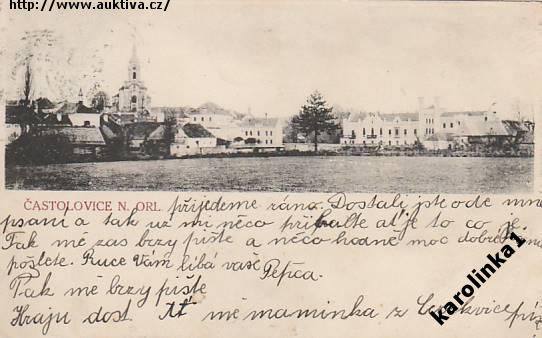 http://www.auktiva.cz/
ČASTOLOVICE N. ORL. přijedeme ráno. Dostali jste ode mne
psaní a tak už mi něco přibalte ať je to co je.
Tak mě zas brzy pište a něco hodně moc dobrého
pošlete. Ruce Vám líbá vaše Pepča.
Tak mě brzy pište
Hraju dost. Ať mě maminka z
karolinka1